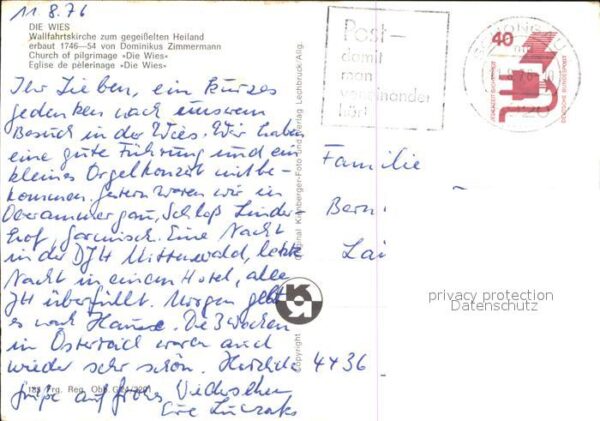 11.8.76
DIE WIES
Wallfahrtskirche zum gegeißelten Heiland
erbaut 1746—54 von Dominikus Zimmermann
Church of pilgrimage »Die Wies«
Eglise de pèlerinage »Die Wies«
Ihr Lieben, ein kurzes
gedenken nach unserem
Besuch in der Wies. Wir haben
eine gute Führung und ein
kleines Orgelkonzert mitbe-
kommen. Gestern waren wir in
Oberammergau, Schloß Linder-
hof, Garmisch. Eine Nacht
in der DJH Mittenwald, letzte
Nacht in einem Hotel, alle
JH überfüllt. Morgen geht
es nach Hause. Die 3 Wochen
in Österreich waren auch
wieder sehr schön. Herzliche
Grüße auf frohes Wiedersehen
Eure
Post-
damit
man
voneinander
hört
40
DEUTSCHE BUNDESPOST
Familie
Bern
Lai
4436
privacy protection
Datenschutz
Copyright
Verlag Lechbruck/Allg.